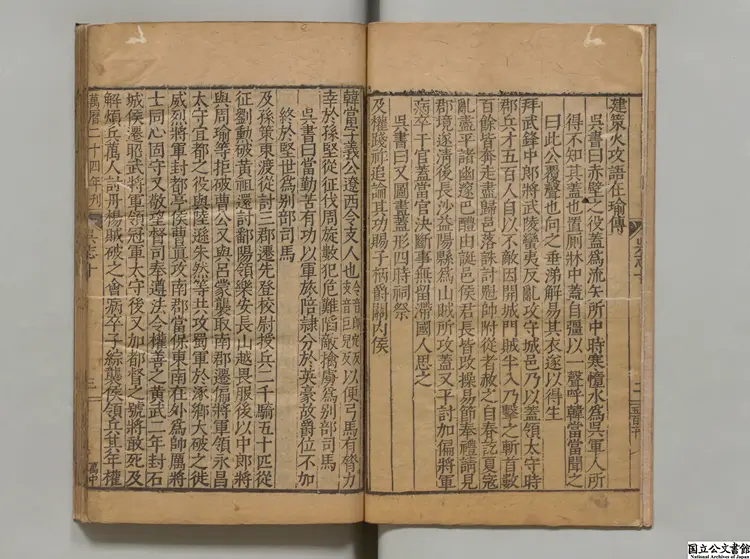 建策火攻語在瑜傳
吳書曰赤壁之役蓋爲流矢所中時寒墮水爲吳軍人所
得不知其蓋也置廁牀中蓋自彊以一聲呼韓當當聞之
曰此公覆聲也向之垂涕解易其衣遂以得生
拜武鋒中郎將武陵蠻夷反亂攻守城邑乃以蓋領太守時
郡兵才五百人自以不敵因開城門賊半入乃擊之斬首數
百餘皆奔走盡歸邑落誅討魁帥附從者赦之自春訖夏寇
亂盡平諸幽邃巴醴由誕邑侯君長皆改操易節奉禮請見
郡境遂清後長沙益陽縣爲山賊所攻蓋又平討加偏將軍
病卒于官蓋當官決斷事無留滯國人思之
吳書曰又圖畫蓋形四時祠祭
及權踐祚追論其功賜子柄爵關內侯
韓當字義公遼西令支人也令音郎定反支音巨兒反以便弓馬有膂力
幸於孫堅從征伐周旋數犯危難陷敵擒虜爲別部司馬
吳書曰當勤苦有功以軍旅陪隸分於英豪故爵位不加
終於堅世爲別部司馬
及孫策東渡從討三郡遷先登校尉授兵二千騎五十匹從
征劉勳破黃祖還討鄱陽領樂安長山越畏服後以中郎將
與周瑜等拒破曹公又與呂蒙襲取南郡遷偏將軍領永昌
太守宜都之役與陸遜朱然等共攻蜀軍於涿鄉大破之徙
威烈將軍封都亭侯曹真攻南郡當保東南在外爲帥厲將
士同心固守又敬望督司奉遵法令權善之黃武二年封石
城侯遷昭武將軍領冠軍太守後又加都督之號將敢死及
解煩兵萬人討丹楊賊破之會病卒子綜襲侯領兵其年權
萬曆二十四年刊
吳志十
三
国立公文書館
National Archives of Japan